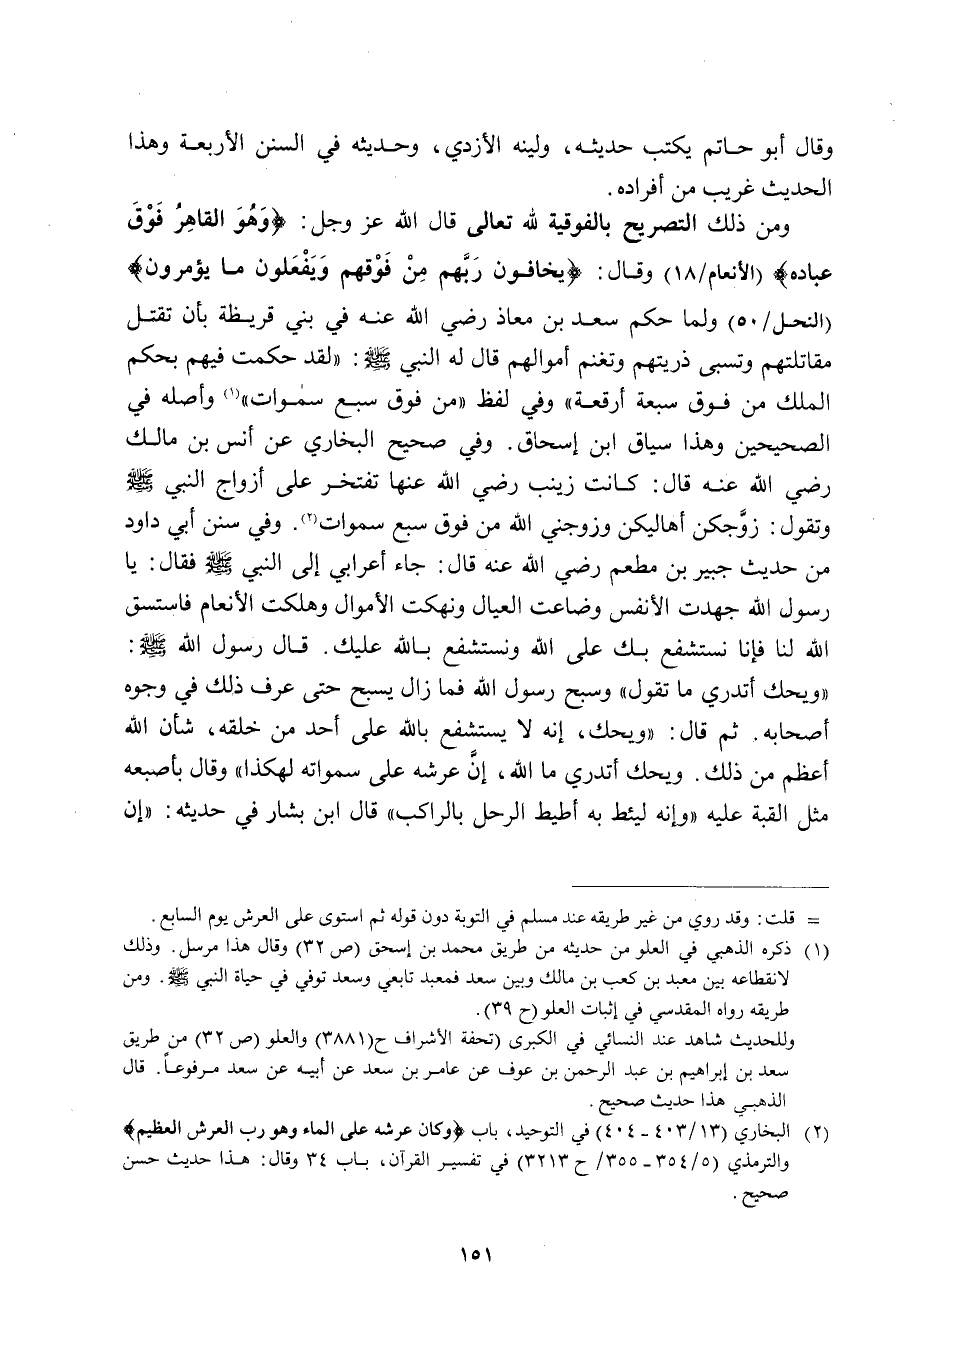 وقال أبو حاتم يكتب حديثه، ولينه الأزدي، وحديثه في السنن الأربعة وهذا
الحديث غريب من أفراده.
ومن ذلك التصريح بالفوقية لله تعالى قال الله عز وجل: ﴿وَهُوَ القاهِرُ فَوْقَ
عباده﴾ (الأنعام/١٨) وقال: ﴿يخافون رَبَّهم مِنْ فَوْقهم وَيَفْعَلون ما يؤمرون﴾
(النحل/٥٠) ولما حكم سعد بن معاذ رضي الله عنه في بني قريظة بأن تقتل
مقاتلتهم وتسبى ذريتهم وتغنم أموالهم قال له النبي ﷺ: «لقد حكمت فيهم بحكم
الملك من فوق سبعة أرقعة» وفي لفظ «من فوق سبع سمٰوات»(١) وأصله في
الصحيحين وهذا سياق ابن إسحاق. وفي صحيح البخاري عن أنس بن مالك
رضي الله عنه قال: كانت زينب رضي الله عنها تفتخر على أزواج النبي ﷺ
وتقول: زوَّجكن أهاليكن وزوجني الله من فوق سبع سموات(٢). وفي سنن أبي داود
من حديث جبير بن مطعم رضي الله عنه قال: جاء أعرابي إلى النبي ﷺ فقال: يا
رسول الله جهدت الأنفس وضاعت العيال ونهكت الأموال وهلكت الأنعام فاستسق
الله لنا فإنا نستشفع بك على الله ونستشفع بالله عليك. قال رسول الله ﷺ:
«ويحك أتدري ما تقول» وسبح رسول الله فما زال يسبح حتى عرف ذلك في وجوه
أصحابه. ثم قال: «ويحك، إنه لا يستشفع بالله على أحد من خلقه، شأن الله
أعظم من ذلك. ويحك أتدري ما الله، إنَّ عرشه على سمواته لهكذا» وقال بأصبعه
مثل القبة عليه «وإنه ليئط به أطيط الرحل بالراكب» قال ابن بشار في حديثه: «إن
= قلت: وقد روي من غير طريقه عند مسلم في التوبة دون قوله ثم استوى على العرش يوم السابع.
(١) ذكره الذهبي في العلو من حديثه من طريق محمد بن إسحق (ص ٣٢) وقال هذا مرسل. وذلك
لانقطاعه بين معبد بن كعب بن مالك وبين سعد فمعبد تابعي وسعد توفي في حياة النبي ﷺ. ومن
طريقه رواه المقدسي في إثبات العلو (ح ٣٩).
وللحديث شاهد عند النسائي في الكبرى (تحفة الأشراف ح(٣٨٨١) والعلو (ص ٣٢) من طريق
سعد بن إبراهيم بن عبد الرحمن بن عوف عن عامر بن سعد عن أبيه عن سعد مرفوعاً. قال
الذهبي هذا حديث صحيح.
(٢) البخاري (٤٠٣/١٣ - ٤٠٤) في التوحيد، باب ﴿وكان عرشه على الماء وهو رب العرش العظيم﴾
والترمذي (٣٥٤/٥ - ٣٥٥/ ح ٣٢١٣) في تفسير القرآن، باب ٣٤ وقال: هذا حديث حسن
صحيح.
١٥١